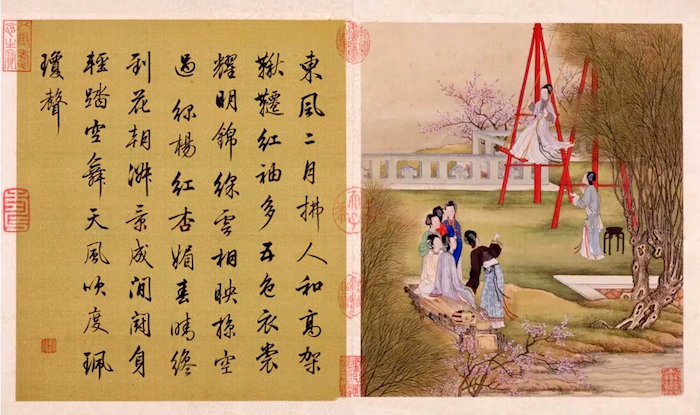 東風二月拂人和高架
鞦韆紅袖多五色衣裳
耀明錦綵雲相映掠空
過綠楊紅杏媚春晴纔
到花朝淑景成閒鬬身
輕踏空舞天風吹度珮
瓊聲